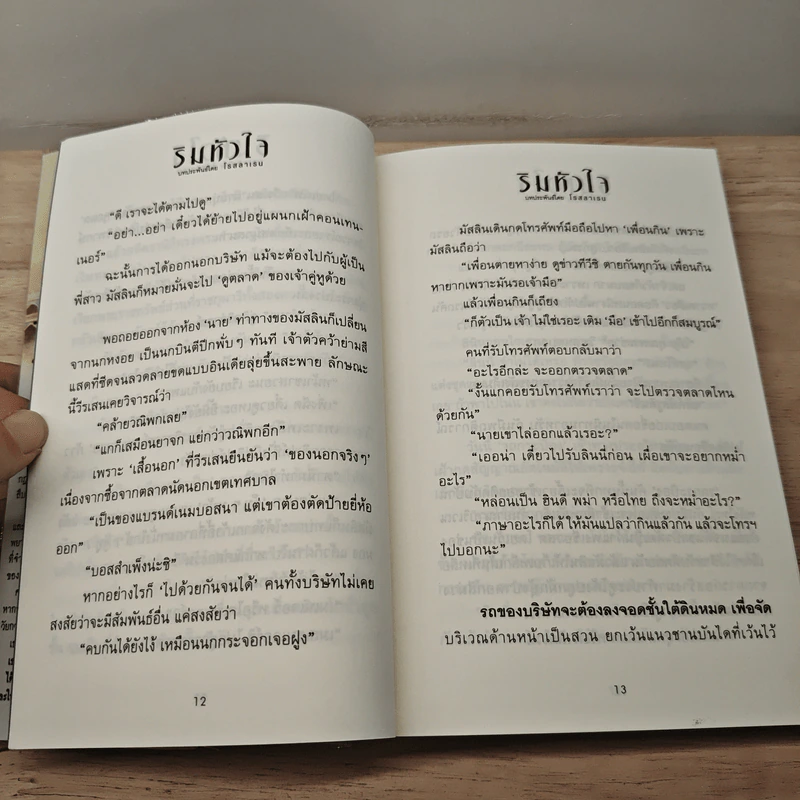 ริมหัวใจ
บทประพันธ์โดย โรสลาเรน
“ดี เราจะได้ตามไปดู”
“อย่า...อย่า เดี๋ยวได้ย้ายไปอยู่แผนกเฝ้าคอนเทน-
เนอร์”
ฉะนั้นการได้ออกนอกบริษัท แม้จะต้องไปกับผู้เป็น
พี่สาว มัสลินก็หมายมั่นจะไป ‘ดูตลาด’ ของเจ้าคู่หูด้วย
พอถอยออกจากห้อง ‘นาย’ ท่าทางของมัสลินก็เปลี่ยน
จากนกหงอย เป็นนกบินตีปีกพั่บๆ ทันที เจ้าตัวคว้าย่ามสี
แสดที่ซีดจนลวดลายขดแบบอินเดียลุ่ยขึ้นสะพาย ลักษณะ
นี้วีรเสนเคยวิจารณ์ว่า
“คล้ายวณิพกเลย”
“แกก็เสมือนยาจก แย่กว่าวณิพกอีก”
เพราะ ‘เสื้อนอก’ ที่วีรเสนยืนยันว่า ‘ของนอกจริงๆ’
เนื่องจากซื้อจากตลาดนัดนอกเขตเทศบาล
“เป็นของแบรนด์เนมบอสนา แต่เขาต้องตัดป้ายยี่ห้อ
ออก”
“บอสสำเพ็งน่ะซิ”
หากอย่างไรก็ ‘ไปด้วยกันจนได้’ คนทั้งบริษัทไม่เคย
สงสัยว่าจะมีสัมพันธ์อื่น แค่สงสัยว่า
“คบกันได้ยังไง้ เหมือนนกกระจอกเจอฝูง”
12
ริมหัวใจ
บทประพันธ์โดย โรสลาเรน
มัสลินเดินกดโทรศัพท์มือถือไปหา ‘เพื่อนกิน’ เพราะ
มัสลินถือว่า
“เพื่อนตายหาง่าย ดูข่าวทีวีซิ ตายกันทุกวัน เพื่อนกิน
หายากเพราะมันรอเจ้ามือ”
แล้วเพื่อนกินก็เถียง
“ก็ตัวเป็น เจ้า ไม่ใช่เรอะ เติม ‘มือ’ เข้าไปอีกก็สมบูรณ์”
คนที่รับโทรศัพท์ตอบกลับมาว่า
“อะไรอีกล่ะ จะออกตรวจตลาด”
“งั้นแกคอยรับโทรศัพท์เราว่า จะไปตรวจตลาดไหน
ด้วยกัน”
“นายเขาไล่ออกแล้วเรอะ?”
“เออน่า เดี๋ยวไปรับลินนี่ก่อน เผื่อเขาจะอยากหม่ำ
อะไร”
“หล่อนเป็น ฮินดี พม่า หรือไทย ถึงจะหม่ำอะไร?”
“ภาษาอะไรก็ได้ ให้มันแปลว่ากินแล้วกัน แล้วจะโทรฯ
ไปบอกนะ”
รถของบริษัทจะต้องลงจอดชั้นใต้ดินหมด เพื่อจัด
บริเวณด้านหน้าเป็นสวน ยกเว้นแนวชานบันไดที่เว้นไว้
13